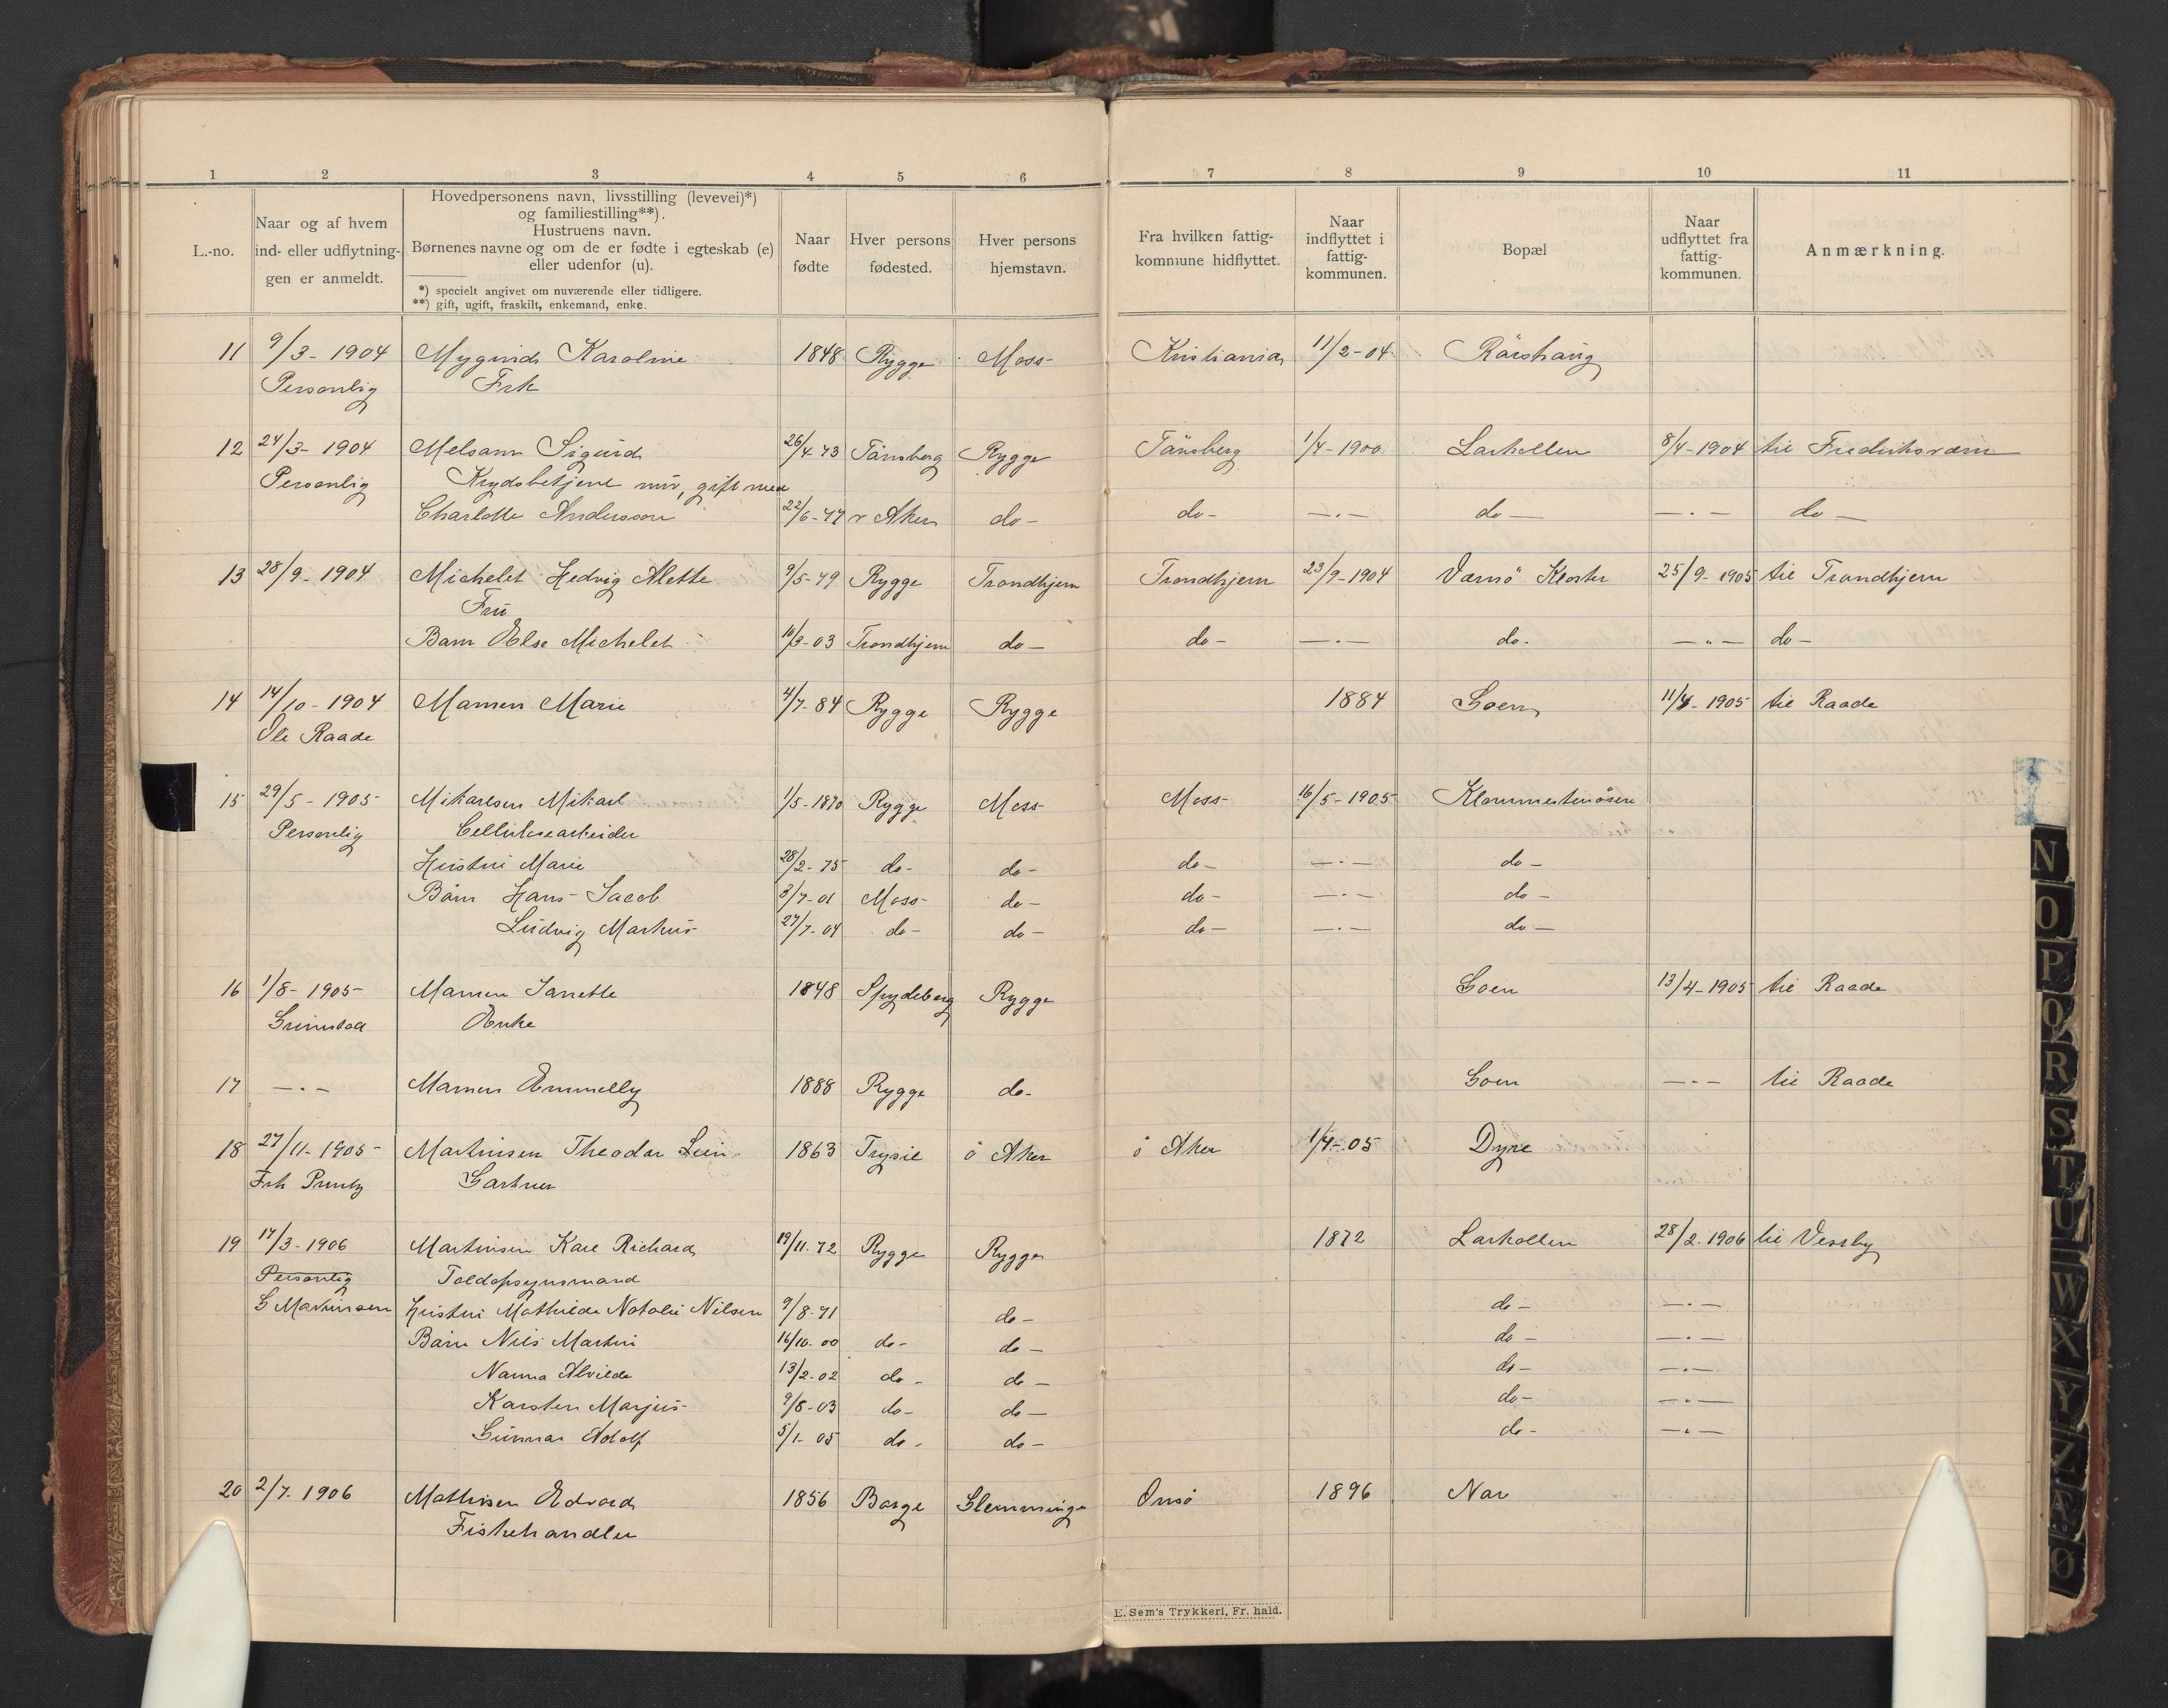 1 2 3 4 5 6 7 8 9 10 11
L.-no.
Naar og af hvem
ind- eller udflytnin-
gen er anmeldt.
Hovedpersonens navn, livsstilling (levevei)*)
og familiestilling**).
Hustruens navn.
Børnenes navne og om de er fødte i egteskab (e)
eller udenfor (u).
*) specielt angivet om nuværende eller tidligere.
**) gift, ugift, fraskilt, enkemand, enke.
Naar
fødte
Hver persons
fødested.
Hver persons
hjemstavn.
Fra hvilken fattig-
kommune hidflyttet.
Naar
indflyttet i
fattig-
kommunen.
Bopæl
Naar
udflyttet fra
fattig-
kommunen.
Anmærkning.
11 9/3- 1904 Mygind Karoline 1848 Rygge Moss- Kristiania 11/2-04 Rörshaug
Personlig Frk
12 24/3- 1904 Melsom Sigurd 26/4-73 Tönsberg Rygge Tönsberg 1/4-1900 Larkollen 8/4-1904 til Fredriksværn
Personlig Krydsbetjent nuv, gift med
Charlotte Anderson 22/6-77 v Aker do- do- -.- do- -.- do-
13 28/9- 1904 Michelet Hedvig Alette 9/5-79 Rygge Trondhjem Trondhjem 23/9-1904 Værnö Kloster 25/9-1905 til Trondhjem
Fru
Barn Else Michelet 10/3-03 Trondhjem do- do- -.- do. -"- do-
14 14/10- 1904 Mamen Marie 4/7-84 Rygge Rygge 1884 Goen 11/4-1905 til Raade
Ole Raade
15 29/5- 1905- Mikarlsen Mikael 1/5-1870 Rygge Moss- Moss- 16/5-1905- Klommestenåsen
Personlig Cellulosearbeider
Hustru Marie 28/2-75 do- do- do- -.- do-
Börn Hans Jacob 3/7-01 Moss- do- do- -.- do-
Ludvig Markus 27/7-04 do- do- do- -.- do-
16 1/8- 1905- Mamen Janette 1848 Spydeberg Rygge Goen 13/4-1905 til Raade
Grimstad Enke
17 -.- Mamen Emmelly 1888 Rygge do- Goen -.- til Raade
18 27/11-1905- Martinsen Theodor 1863 Trysil ö Aker ö Aker 1/4-05 Dyre
Frk Gartner
19 17/3-1906 Martinsen Karl Richard 19/11-72 Rygge Rygge 1872 Larkollen 28/2.1906 til Vestby
Personlig Toldopsynsmand
G Martinsen Hustru Mathilde Natalie Nilsen 9/8-71 do- do- -.-
Börn Nils Martin 16/10-00 do- do- do- -.-
Nanna Alvilde 13/2-02 do- do- do- -.-
Karsten Marjus- 9/8-03 do- do- do- -.-
Gunnar Adolf 5/1-05 do- do- do- -.-
20 2/7.1906 Mathisen Edvard 1856 Borge Glemminge Onsö 1896 Nar
Fiskehandler
E. Sem's Trykkeri, Fr. hald.
N
O
P
Q
R
S
T
U
W
X
Y
Z
Æ
Ø